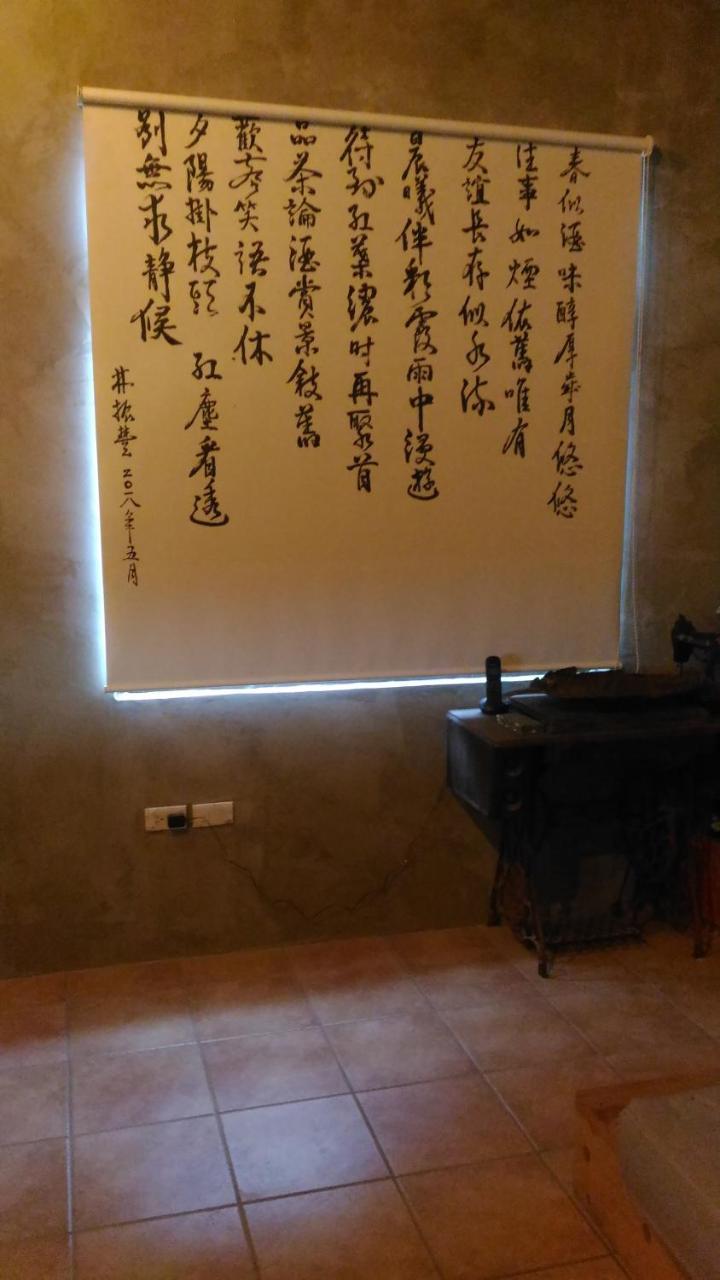 春似酒味醇厚歲月悠悠
往事如煙依舊唯有
友誼長存似水流
晨曦伴彩霞雨中漫遊
待到紅葉濃時再聚首
品茶論酒賞景敘舊
歡聲笑語不休
夕陽掛枝頭 紅塵看透
別無求靜候
林振豊二〇一八年五月